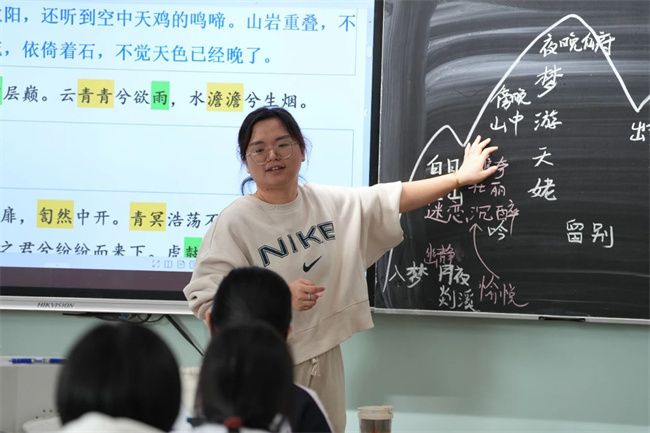 阳，还听到空中天鸡的鸣啼。山岩重叠，不
，依倚着石，不觉天色已经晚了。
层巅。云青青兮欲雨，水澹澹兮生烟。
扉，訇然中开。青冥浩荡不
之君兮纷纷而来下。虎鼓
HIKVISION
NIKE
夜晚仙府
傍晚
山中
白日
山
梦游天姥
吟
留别
出
静
壮丽
迷恋沉醉
幽静
入梦 月夜
剡溪
愉悦